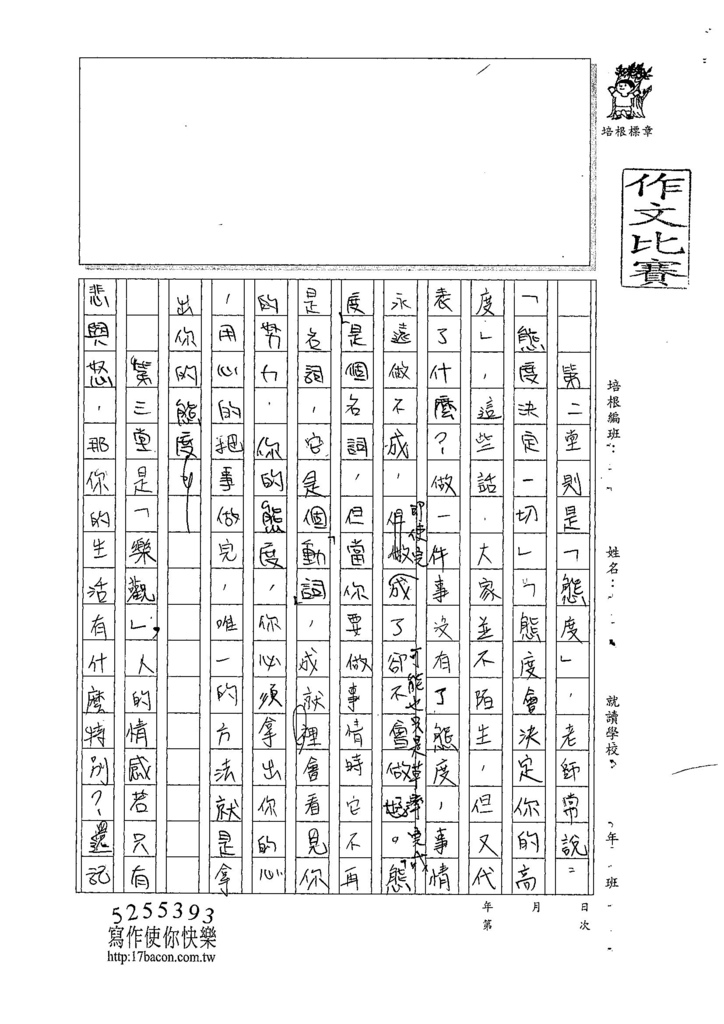 培根標章
作文比賽
培根編班：
姓名：
就讀學校：
年 班
第二堂則是「態度」，老師常說：
「態度決定一切」「態度會決定你的高
度」，這些話，大家並不陌生，但又代
表了什麼？做一件事沒有了態度，事情
永遠做不成，但做成了卻不會做好。「態
即使完
可能也只是草率完成
度」是個名詞，但當你要做事情時它不再
是名詞，它是個「動詞」，成就裡會看見你
的努力，你的態度，你必須拿出你的心
，用心的把事做完，唯一的方法就是拿
出你的態度。
第三堂是「樂觀」，人的情感若只有
悲與怒，那你的生活有什麼特別？還記
年 月 日
第 次
5255393
寫作使你快樂
http:17bacon.com.tw